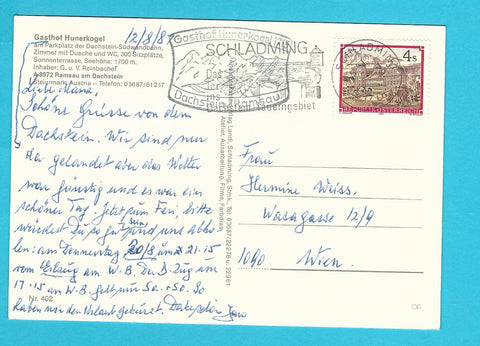 Gasthof Hunerkogel
am Parkplatz der Dachstein-Südwandbahn,
Zimmer mit Dusche und WC, 300 Sitzplätze,
Sonnenterrasse, Seehöhe: 1700 m.
Inhaber: G. u. V. Reinbacher
A-8972 Ramsau am Dachstein
Steiermark Austria - Telefon: 03687/81217
12/8/87
Liebe Mama,
Schöne Grüsse vom
Dachstein. Wir sind nur
da gelandet aber das Wetter
war günstig und es war ein
schöner Tag. Jetzt zum Feri, bitte
würdest Du so gut sein und abho
len: am Donnerstag 20/8 um 21.15
vom Eilzug am W.B. Der D-Zug um
17.15 am W.B. geht nur Sa. + So. So
haben wir den Urlaub gekürzt.
Nr. 402
Gasthof Hunerkogel
SCHLADMING
Das
Tor
ins
Dachstein-Tauerngebiet
Dachstein/Ramsau
SCHLADMING
4 S
REPUBLIK ÖSTERREICH
Verlag Landl, Schladming, Stmk., Tel. 03687/22278 u. 22961
Atelier, Ausarbeitung, Filme, Farbdias
Frau
Hermine Weiss.
Wasagasse 12/9
1090 Wien.